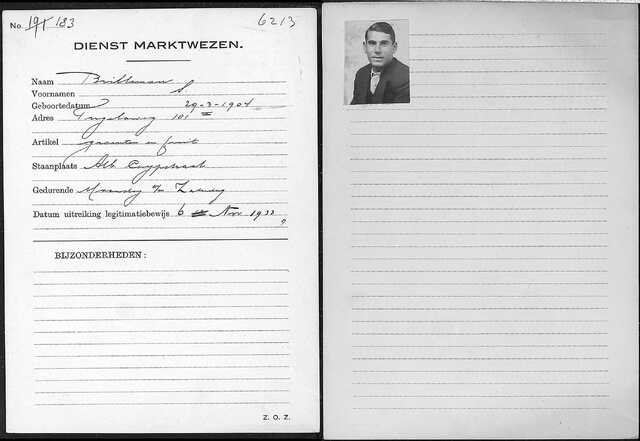 No. 191 183
6213
DIENST MARKTWEZEN.
Naam Brilleman
Voornamen S.
Geboortedatum 29-3-1904
Adres 101
Artikel groenten en fruit
Staanplaats Alb Cuypstraat
Gedurende Maandag t/m Zaterdag
Datum uitreiking legitimatiebewijs 6 Nov 1933
BIJZONDERHEDEN:
Z. O. Z.